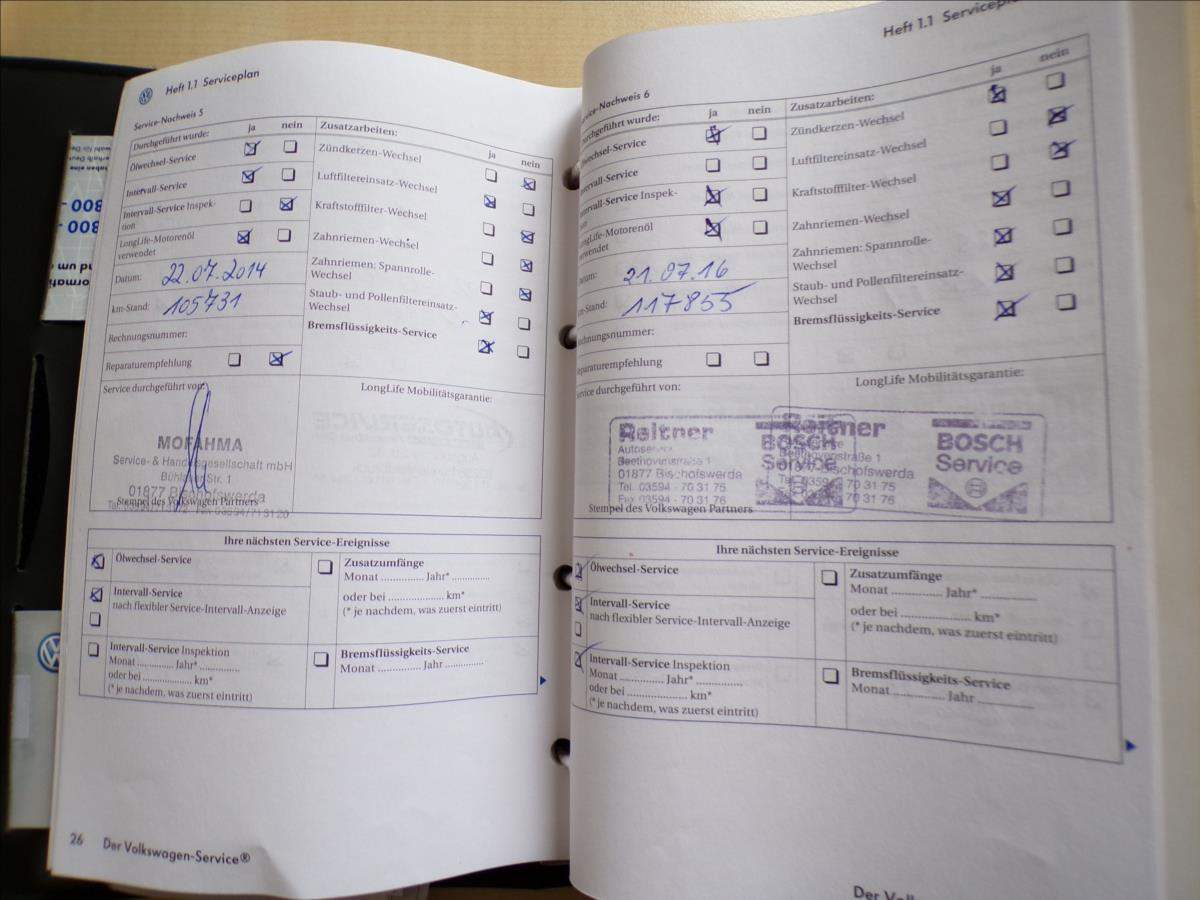 Heft 1.1 Serviceplan
Service-Nachweis 5
Durchgeführt wurde: ja nein
Ölwechsel-Service
Intervall-Service
Intervall-Service Inspek-
tion
LongLife-Motorenöl
verwendet
Datum: 22.07.2014
km-Stand: 105731
Rechnungsnummer:
Reparaturempfehlung
Zusatzarbeiten:
ja nein
Zündkerzen-Wechsel
Luftfiltereinsatz-Wechsel
Kraftstofffilter-Wechsel
Zahnriemen-Wechsel
Zahnriemen: Spannrolle-
Wechsel
Staub- und Pollenfiltereinsatz-
Wechsel
Bremsflüssigkeits-Service
Service durchgeführt von:
MOFAHMA
Service- & Handelsgesellschaft mbH
Str. 1
01877 Bischofswerda
Stempel des Volkswagen Partners
LongLife Mobilitätsgarantie:
Ihre nächsten Service-Ereignisse
Ölwechsel-Service
Intervall-Service
nach flexibler Service-Intervall-Anzeige
Intervall-Service Inspektion
Monat ............. Jahr* .............
oder bei .................... km*
(* je nachdem, was zuerst eintritt)
Zusatzumfänge
Monat ............. Jahr* .............
oder bei .................... km*
(* je nachdem, was zuerst eintritt)
Bremsflüssigkeits-Service
Monat ............. Jahr .............
26 Der Volkswagen-Service®
Heft 1.1
Service-Nachweis 6
Durchgeführt wurde: ja nein
Ölwechsel-Service
Intervall-Service
Intervall-Service Inspek-
tion
LongLife-Motorenöl
verwendet
Datum: 21.07.16
km-Stand: 117855
Rechnungsnummer:
Reparaturempfehlung
Zusatzarbeiten:
ja nein
Zündkerzen-Wechsel
Luftfiltereinsatz-Wechsel
Kraftstofffilter-Wechsel
Zahnriemen-Wechsel
Zahnriemen: Spannrolle-
Wechsel
Staub- und Pollenfiltereinsatz-
Wechsel
Bremsflüssigkeits-Service
Service durchgeführt von:
LongLife Mobilitätsgarantie:
Reitner
Autoservice
Beethovenstraße 1
01877 Bischofswerda
Tel. 03594 - 70 31 75
Fax 03594 - 70 31 76
BOSCH
Service
Reitner
Beethovenstraße 1
Bischofswerda
Tel. 03594 - 70 31 75
70 31 76
BOSCH
Service
Stempel des Volkswagen Partners
Ihre nächsten Service-Ereignisse
Ölwechsel-Service
Intervall-Service
nach flexibler Service-Intervall-Anzeige
Intervall-Service Inspektion
Monat ............. Jahr* .............
oder bei .................... km*
(* je nachdem, was zuerst eintritt)
Zusatzumfänge
Monat ............. Jahr* .............
oder bei .................... km*
(* je nachdem, was zuerst eintritt)
Bremsflüssigkeits-Service
Monat ............. Jahr .............
Der